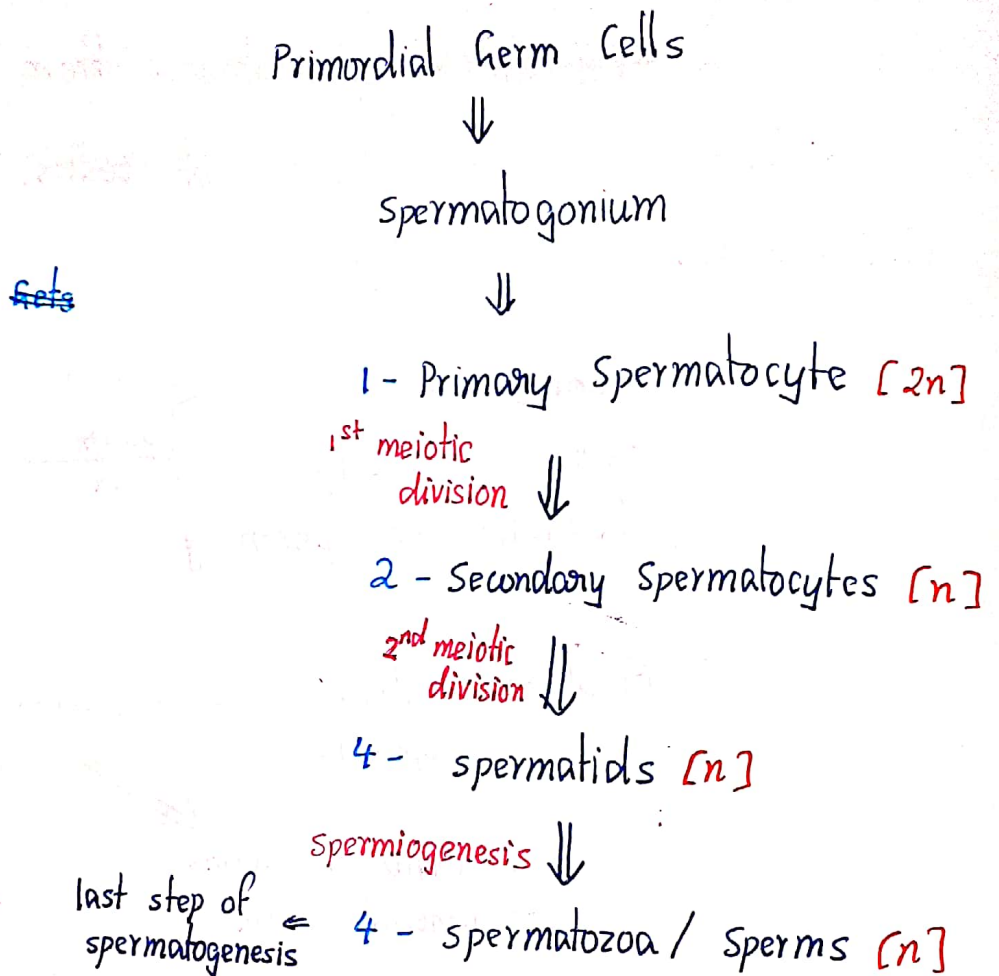 Primordial Germ Cells
⇓
Spermatogonium
⇓
Gets
1 - Primary Spermatocyte [2n]
1st meiotic
division ⇓
2 - Secondary Spermatocytes [n]
2nd meiotic
division ⇓
4 - spermatids [n]
Spermiogenesis ⇓
last step of
spermatogenesis ⇐ 4 - spermatozoa / Sperms [n]